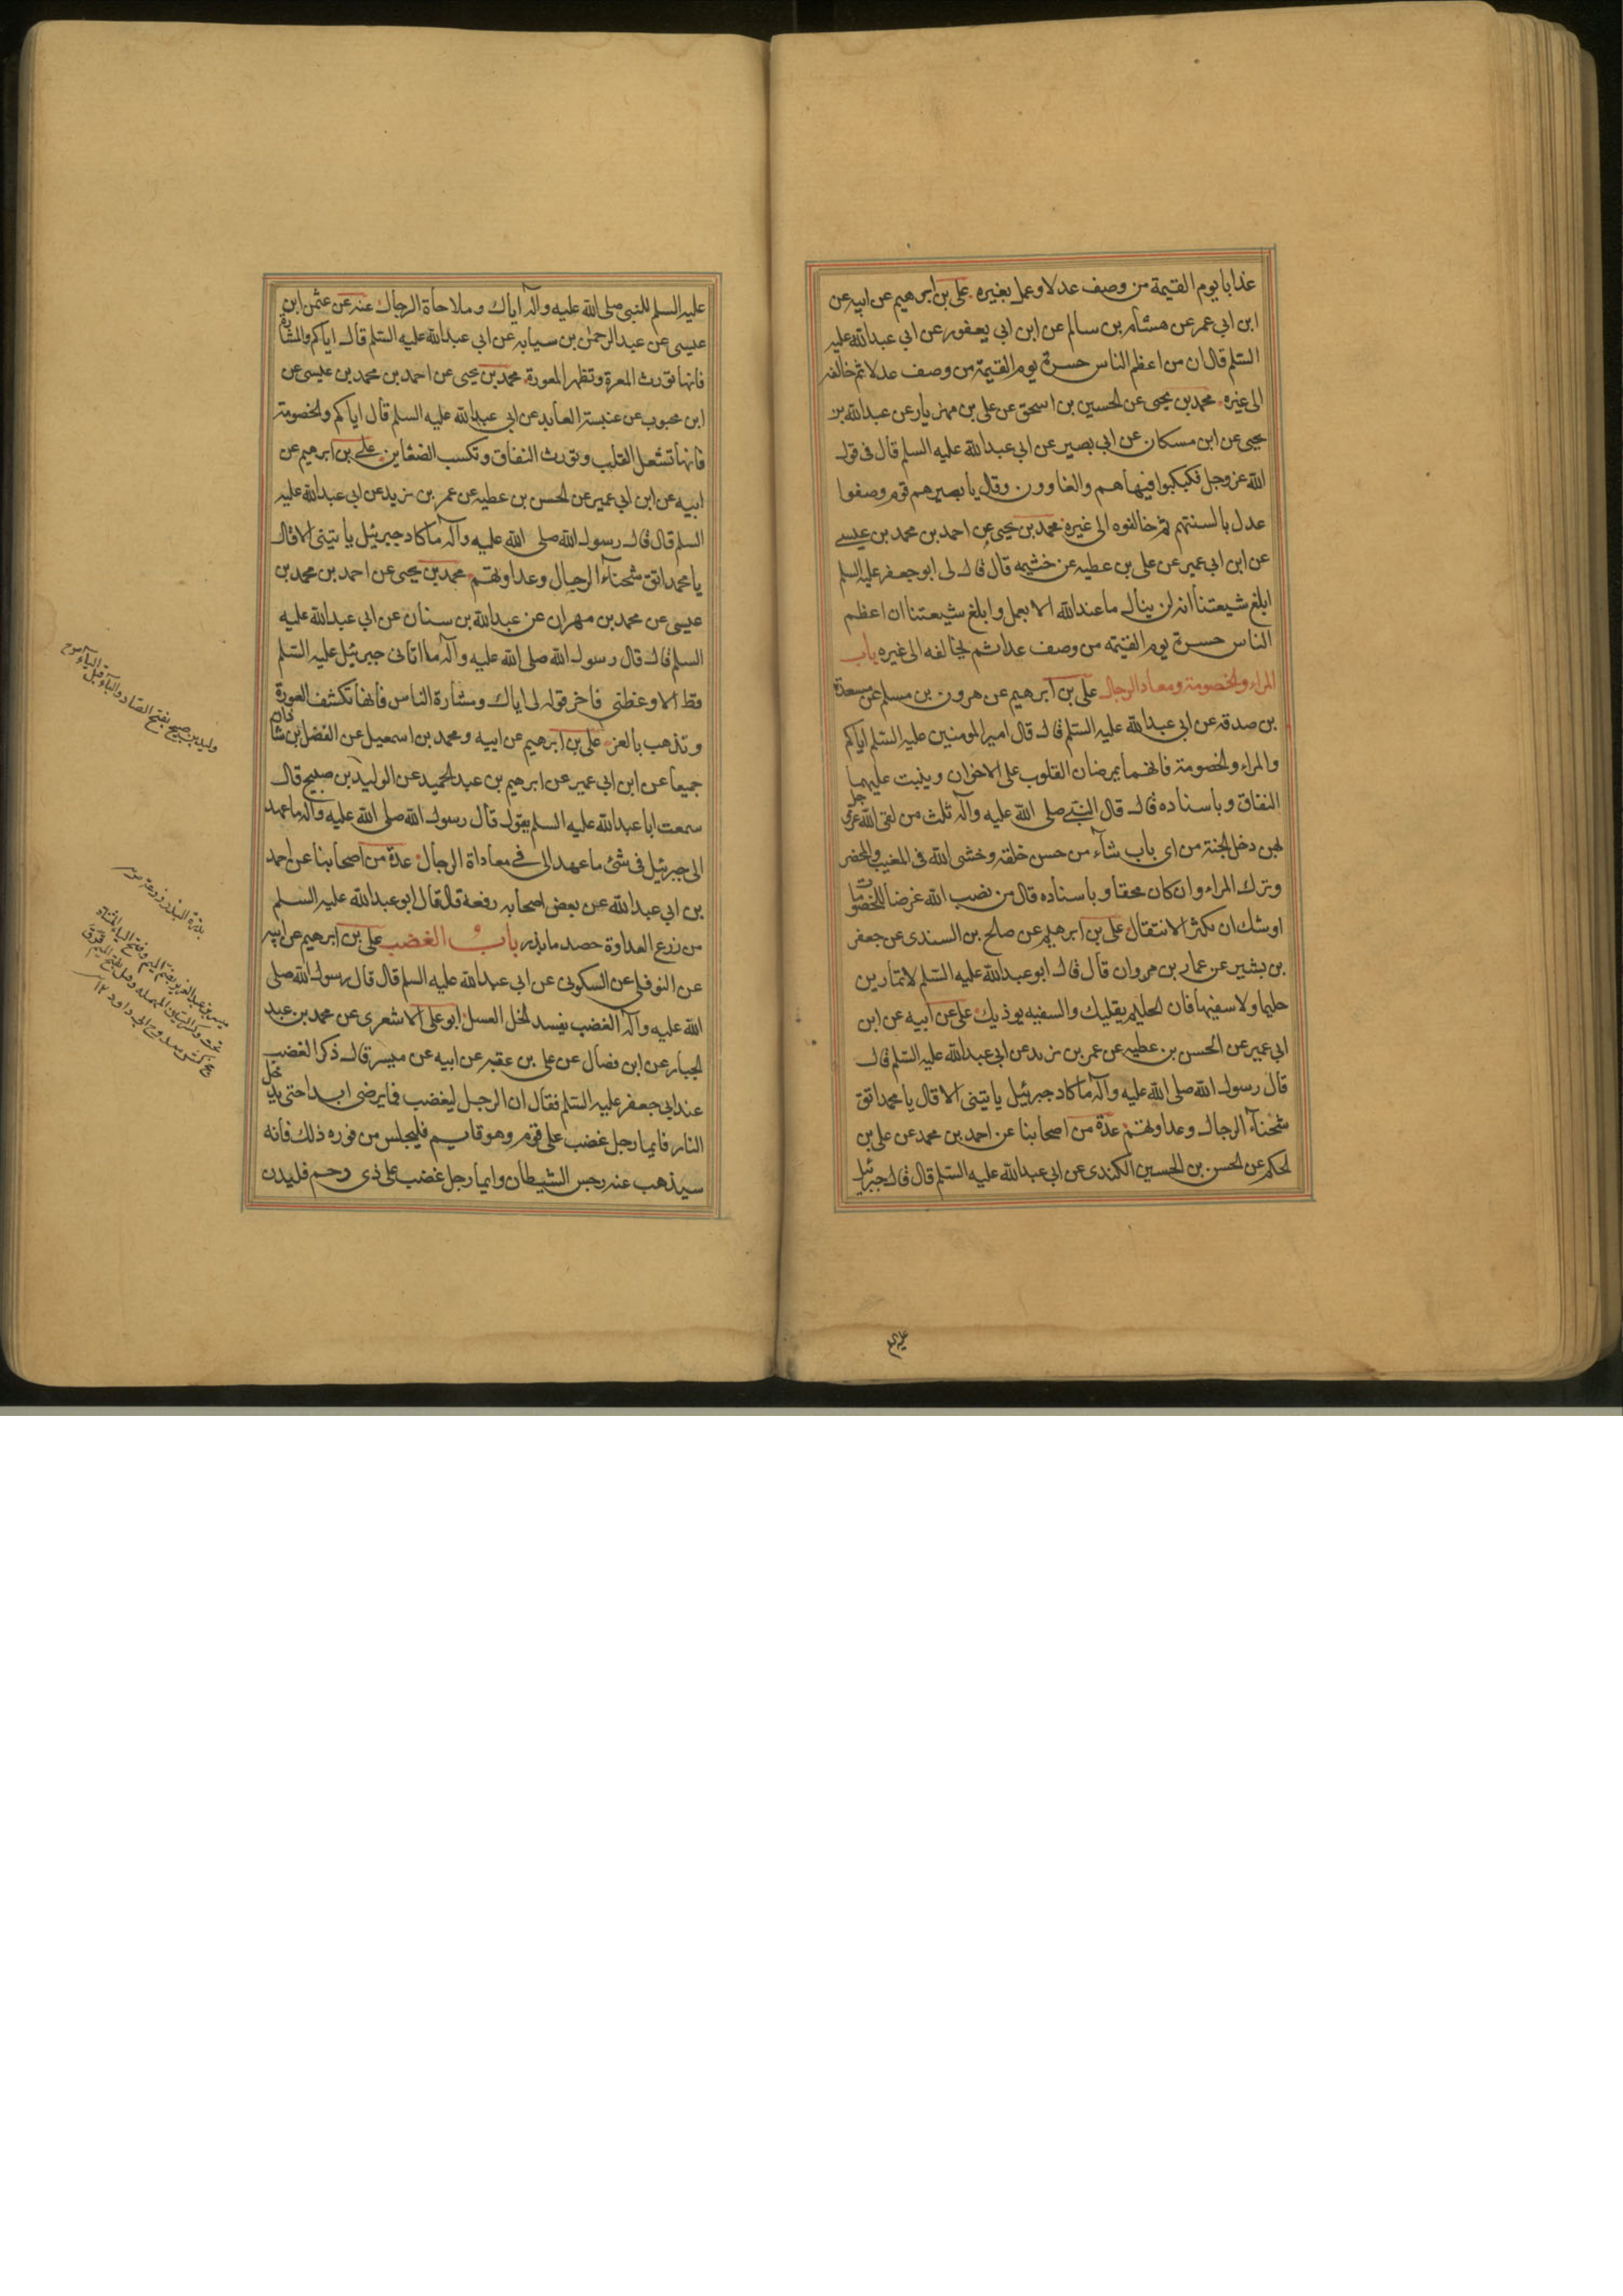 عذابا يوم القيمة من وصف عدلا وعمل بغيره علي بن ابرهيم عن ابيه عن
ابن ابي عمر عن هشام بن سالم عن ابن ابي يعفور عن ابي عبدالله عليه
السلم قال ان من اعظم الناس حسرة يوم القيمة من وصف عدلا ثم خالفه
الى غيره محمد بن يحيى عن الحسين بن اسحق عن علي بن مهزيار عن عبدالله بن
يحيى عن ابن مسكان عن ابي بصير عن ابي عبدالله عليه السلم قال في قول
الله عز وجل فكبكبوا فيها هم والغاوون وقال يا بصير هم قوم وصفوا
عدل بالسنتهم ثم خالفوه الى غيره محمد بن يحيى عن احمد بن محمد بن عيسى
عن ابن ابي عمير عن علي بن عطيه عن خثيمه قال قال لى ابو جعفر عليه السلم
ابلغ شيعتنا انه لن ينال ما عند الله الا بعمل وابلغ شيعتنا ان اعظم
الناس حسرة يوم القيمة من وصف عدلا ثم يخالفه الى غيره باب
المراء والخصومة ومعاد الرجال علي بن ابرهيم عن هرون بن مسلم عن مسعدة
بن صدقه عن ابي عبدالله عليه السلم قال قال امير المومنين عليه السلم اياكم
والمراء والخصومة فانهما يمرضان القلوب على الاخوان وينبت عليهما
النفاق وباسناده قال قال النبي صلى الله عليه وآله ثلث من لقى الله عز و جل
بهن دخل الجنة من اى باب شآء من حسن خلقه وخشى الله فى المغيب والمحضر
وترك المراء وان كان محقا وباسناده قال من نصب الله غرضا للخصومات
اوشك ان يكثر الانتقال علي بن ابرهيم عن صالح بن السندى عن جعفر
بن بشير عن عمار بن مروان قال قال ابو عبدالله عليه السلم لا تمارين
حليما ولا سفيها فان الحليم يقليك والسفيه يوذيك علي عن ابيه عن ابن
ابي عمير عن الحسن بن عطيه عن عمر بن يزيد عن ابي عبدالله عليه السلم قال
قال رسول الله صلى الله عليه وآله ما كاد جبرئيل ياتينى الا قال يا محمد اتق
شحنآء الرجال وعداوتهم عدة من اصحابنا عن احمد بن محمد عن علي بن
الحكم عن الحسن بن الحسين الكندى عن ابي عبدالله عليه السلم قال قال جبرئيل
عليه السلم
عليه السلم للنبى صلى الله عليه وآله اياك وملاحاة الرجال عنه عن عثمن ابن
عيسى عن عبد الرحمن بن سيابه عن ابي عبدالله عليه السلم قال اياكم والمشارة
فانها تورث المعرة وتظهر المعورة محمد بن يحيى عن احمد بن محمد بن عيسى عن
ابن محبوب عن عنبسة العابد عن ابي عبدالله عليه السلم قال اياكم والخصومة
فانها تشغل القلب وتورث النفاق وتكسب الضغاين علي بن ابرهيم عن
ابيه عن ابن ابي عمير عن الحسن بن عطيه عن عمر بن يزيد عن ابي عبدالله عليه
السلم قال قال رسول الله صلى الله عليه وآله ما كاد جبرئيل ياتينى الا قال
يا محمد اتق شحنآء الرجال وعداوتهم محمد بن يحيى عن احمد بن محمد بن
عيسى عن محمد بن مهران عن عبدالله بن سنان عن ابي عبدالله عليه
السلم قال قال رسول الله صلى الله عليه وآله ما اتانى جبرئيل عليه السلم
قط الا وعظنى فاخر قوله لى اياك ومشارة الناس فانها تكشف العورة
وتذهب بالعز علي بن ابرهيم عن ابيه ومحمد بن اسمعيل عن الفضل بن شاذان
جميعا عن ابن ابي عمير عن ابرهيم بن عبد الحميد عن الوليد بن صبيح قال
سمعت ابا عبدالله عليه السلم يقول قال رسول الله صلى الله عليه وآله ما عهد
الى جبرئيل فى شئ ما عهد الى فى معاداة الرجال عدة من اصحابنا عن احمد
بن ابي عبدالله عن بعض اصحابه رفعه قال قال ابو عبدالله عليه السلم
من زرع العداوة حصد ما بذر باب الغضب علي بن ابرهيم عن ابيه
عن النوفلى عن السكونى عن ابي عبدالله عليه السلم قال قال رسول الله صلى
الله عليه وآله الغضب يفسد الخل العسل ابو على الاشعرى عن محمد بن عبد
الجبار عن ابن فضال عن على بن عقبه عن ابيه عن ميسر قال ذكر الغضب
عند ابي جعفر عليه السلم فقال ان الرجل ليغضب فما يرضى ابدا حتى يدخل
النار فايما رجل غضب على قوم وهو قايم فليجلس من فوره ذلك فانه
سيذهب عنه رجس الشيطان وايما رجل غضب على ذى رحم فليدن
وليد بن صبيح بفتح الصاد والباء قبل الياء
ميسر بن عبد العزيز بضم الميم وفتح الياء المثناة